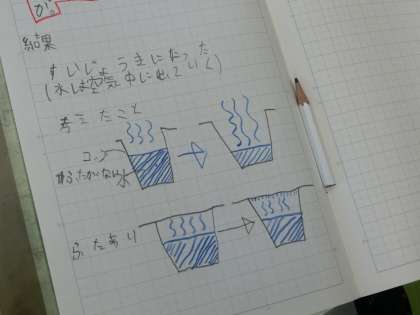 が。
結果
すいじょうきになった
(水は空気中に出ていく)
考えたこと
コップ
ふたがない
水
ふたあり